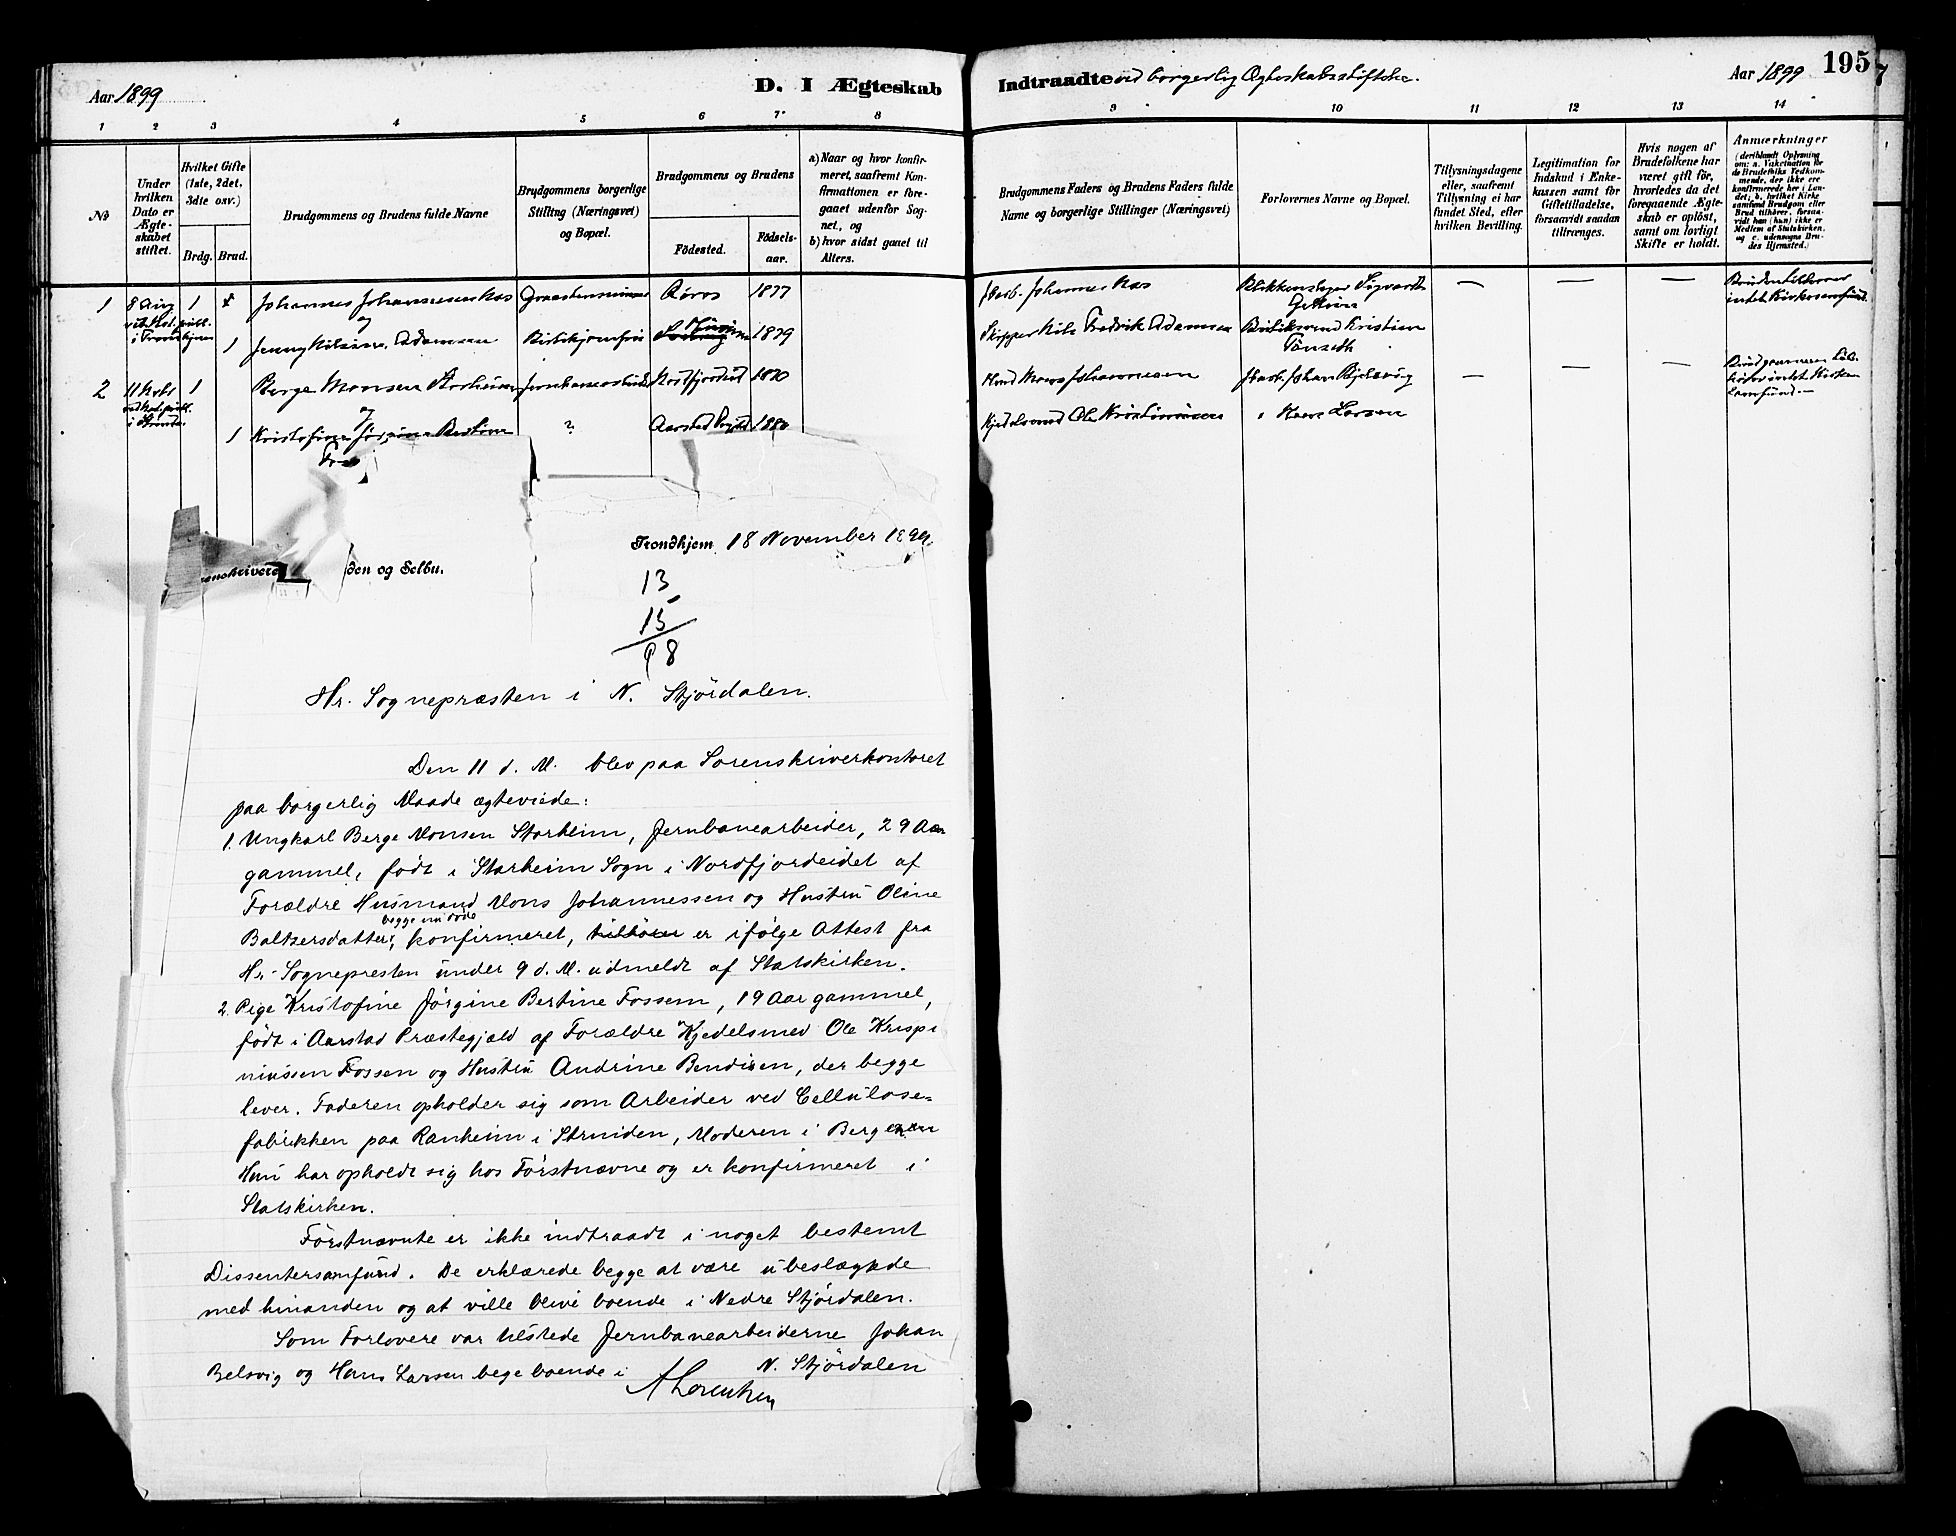 Aar 1899
D. I Ægteskab
1 2 3 4 5 6 7 8
No
Under hvilken Dato er Ægteskabet stiftet.
Hvilket Gifte (1ste, 2det, 3die osv.)
Brdg. Brud.
Brudgommens og Brudens fulde Navne
Brudgommens borgerlige Stilling (Næringsvei) og Bopæl.
Brudgommens og Brudens
Födested.
Födselsaar.
a) Naar og hvor konfirmeret, saafremt Konfirmationen er foregaaet udenfor Sognet, og
b) hvor sidst gaaet til Alters.
1 8 Aug 1 Johannes Johannesen Aas Röros 1877
og
1 Jenny Adamsen 1879
2 11 Nobr 1 Berge Monsen Storheim Nordfjordeid 1870
og
1 Kristofine Jörgine Bertine ? Aarstad Prgjld 1880
Indtraadte ved borgerlig Ægteskabsstiftelse.
Aar 1899 195
7
9 10 11 12 13 14
Brudgommens Faders og Brudens Faders fulde Navne og borgerlige Stillinger (Næringsvei)
Forlovernes Navne og Bopæl.
Tillysningsdagene eller, saafremt Tillysning ei har fundet Sted, efter hvilken Bevilling.
Legitimation for Indskud i Enkekassen samt for Giftetilladelse, forsaavidt saadan tiltrænges.
Hvis nogen af Brudefolkene har været gift för, hvorledes da det foregaaende Ægteskab er oplöst, samt om lovligt Skifte er holdt.
Anmærkninger
(deriblandt Oplysning om: a. Vakcination for de Brudefolks Vedkommende, der ikke ere konfirmerede her i Landet; b. hvilket Kirkesamfund Brudgom eller Brud tilhører, forsaavidt han (hun) ikke er Medlem af Statskirken, og c. udensogns Brudes Hjemsted.)
Arb. Johannes Aas Blikkenslager Sigvardt — — — Bruden tilhører
intet Kirkesamfund.
Skipper Nils Fredrik Adamsen Kristian
Tönseth
Husmd Mons Johannesen Jbarb. Johan Bjelsvig — — — Brudgommen tilhører intet Kirkesamfund.—
Kjedelsmed Ole " Hans Larsen
Trondhjem 18 November 1899.
den og Selbu.
13
15
98
Hr. Sognepræsten i N. Stjördalen.
Den 11 d. M. blev paa Sorenskriverkontoret
paa borgerlig Maade ægteviede:
1. Ungkarl Berge Monsen Storheim, Jernbanearbeider, 29 Aar
gammel, född i Starheim Sogn i Nordfjordeidet af
Forældre Husmand Mons Johannessen og Hustru Oline
begge nu döde
Baltzersdatter; konfirmeret, tilhörer er ifølge Attest fra
Hr. Sognepresten under 9 d. M. udmeldt af Statskirken.
2. Pige Kristofine Jörgine Bertine Fossem, 19 Aar gammel,
födt i Aarstad Præstegjæld af Forældre Kjedelsmed Ole Krispi
niussen Fossen og Hustru Andrine Bendixen, der begge
lever. Faderen opholder sig som Arbeider ved Cellulose=
fabrikken paa Ranheim i Strinden, Moderen i Bergen
Hun har opholdt sig hos Förstnævne og er konfirmeret i
Statskirken.
Förstnævnte er ikke indtraadt i noget bestemt
Dissentersamfund. De erklærede begge at være ubeslægtede
med hinanden og at ville blive boende i Nedre Stjördalen.
Som Forlovere var tilstede Jernbanearbeiderne Johan
Belsvig og Hans Larsen bege boende i N. Stjördalen
A Lorentzen